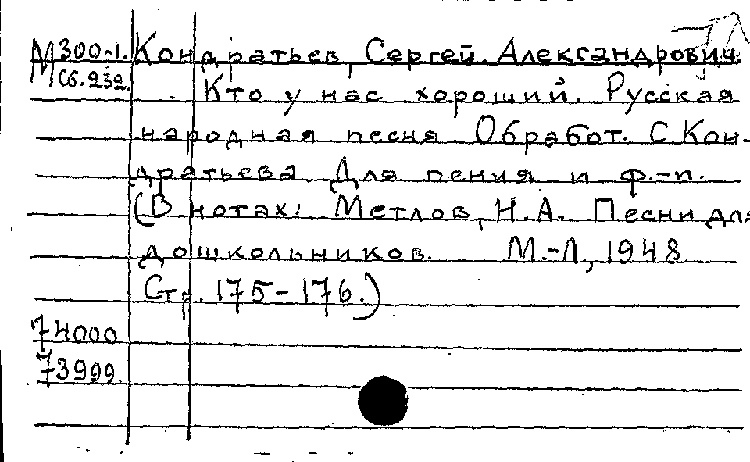 М 300-1. Кондратьев, Сергей Александрович.
Сб. 232. Кто у нас хороший. Русская
народная песня Обработ. С. Кон-
дратьева Для пения и ф.-п.
(В нотах: Метлов, Н.А. Песни для
дошкольников. М.-Л, 1948
Стр. 175-176.)
74000
73999